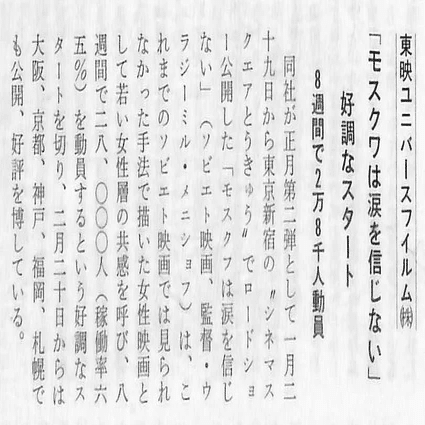 東映ユニバースフイルム㈱
「モスクワは涙を信じない」
好調なスタート
8週間で2万8千人動員
同社が正月第二弾として一月二
十九日から東京新宿の〝シネマス
クエアとうきゅう〟でロードショ
ー公開した「モスクワは涙を信じ
ない」（ソビエト映画、監督・ウ
ラジーミル・メニショフ）は、こ
れまでのソビエト映画では見られ
なかった手法で描いた女性映画と
して若い女性層の共感を呼び、八
週間で二八、〇〇〇人（稼働率六
五％）を動員するという好調なス
タートを切り、二月二十日からは
大阪、京都、神戸、福岡、札幌で
も公開、好評を博している。